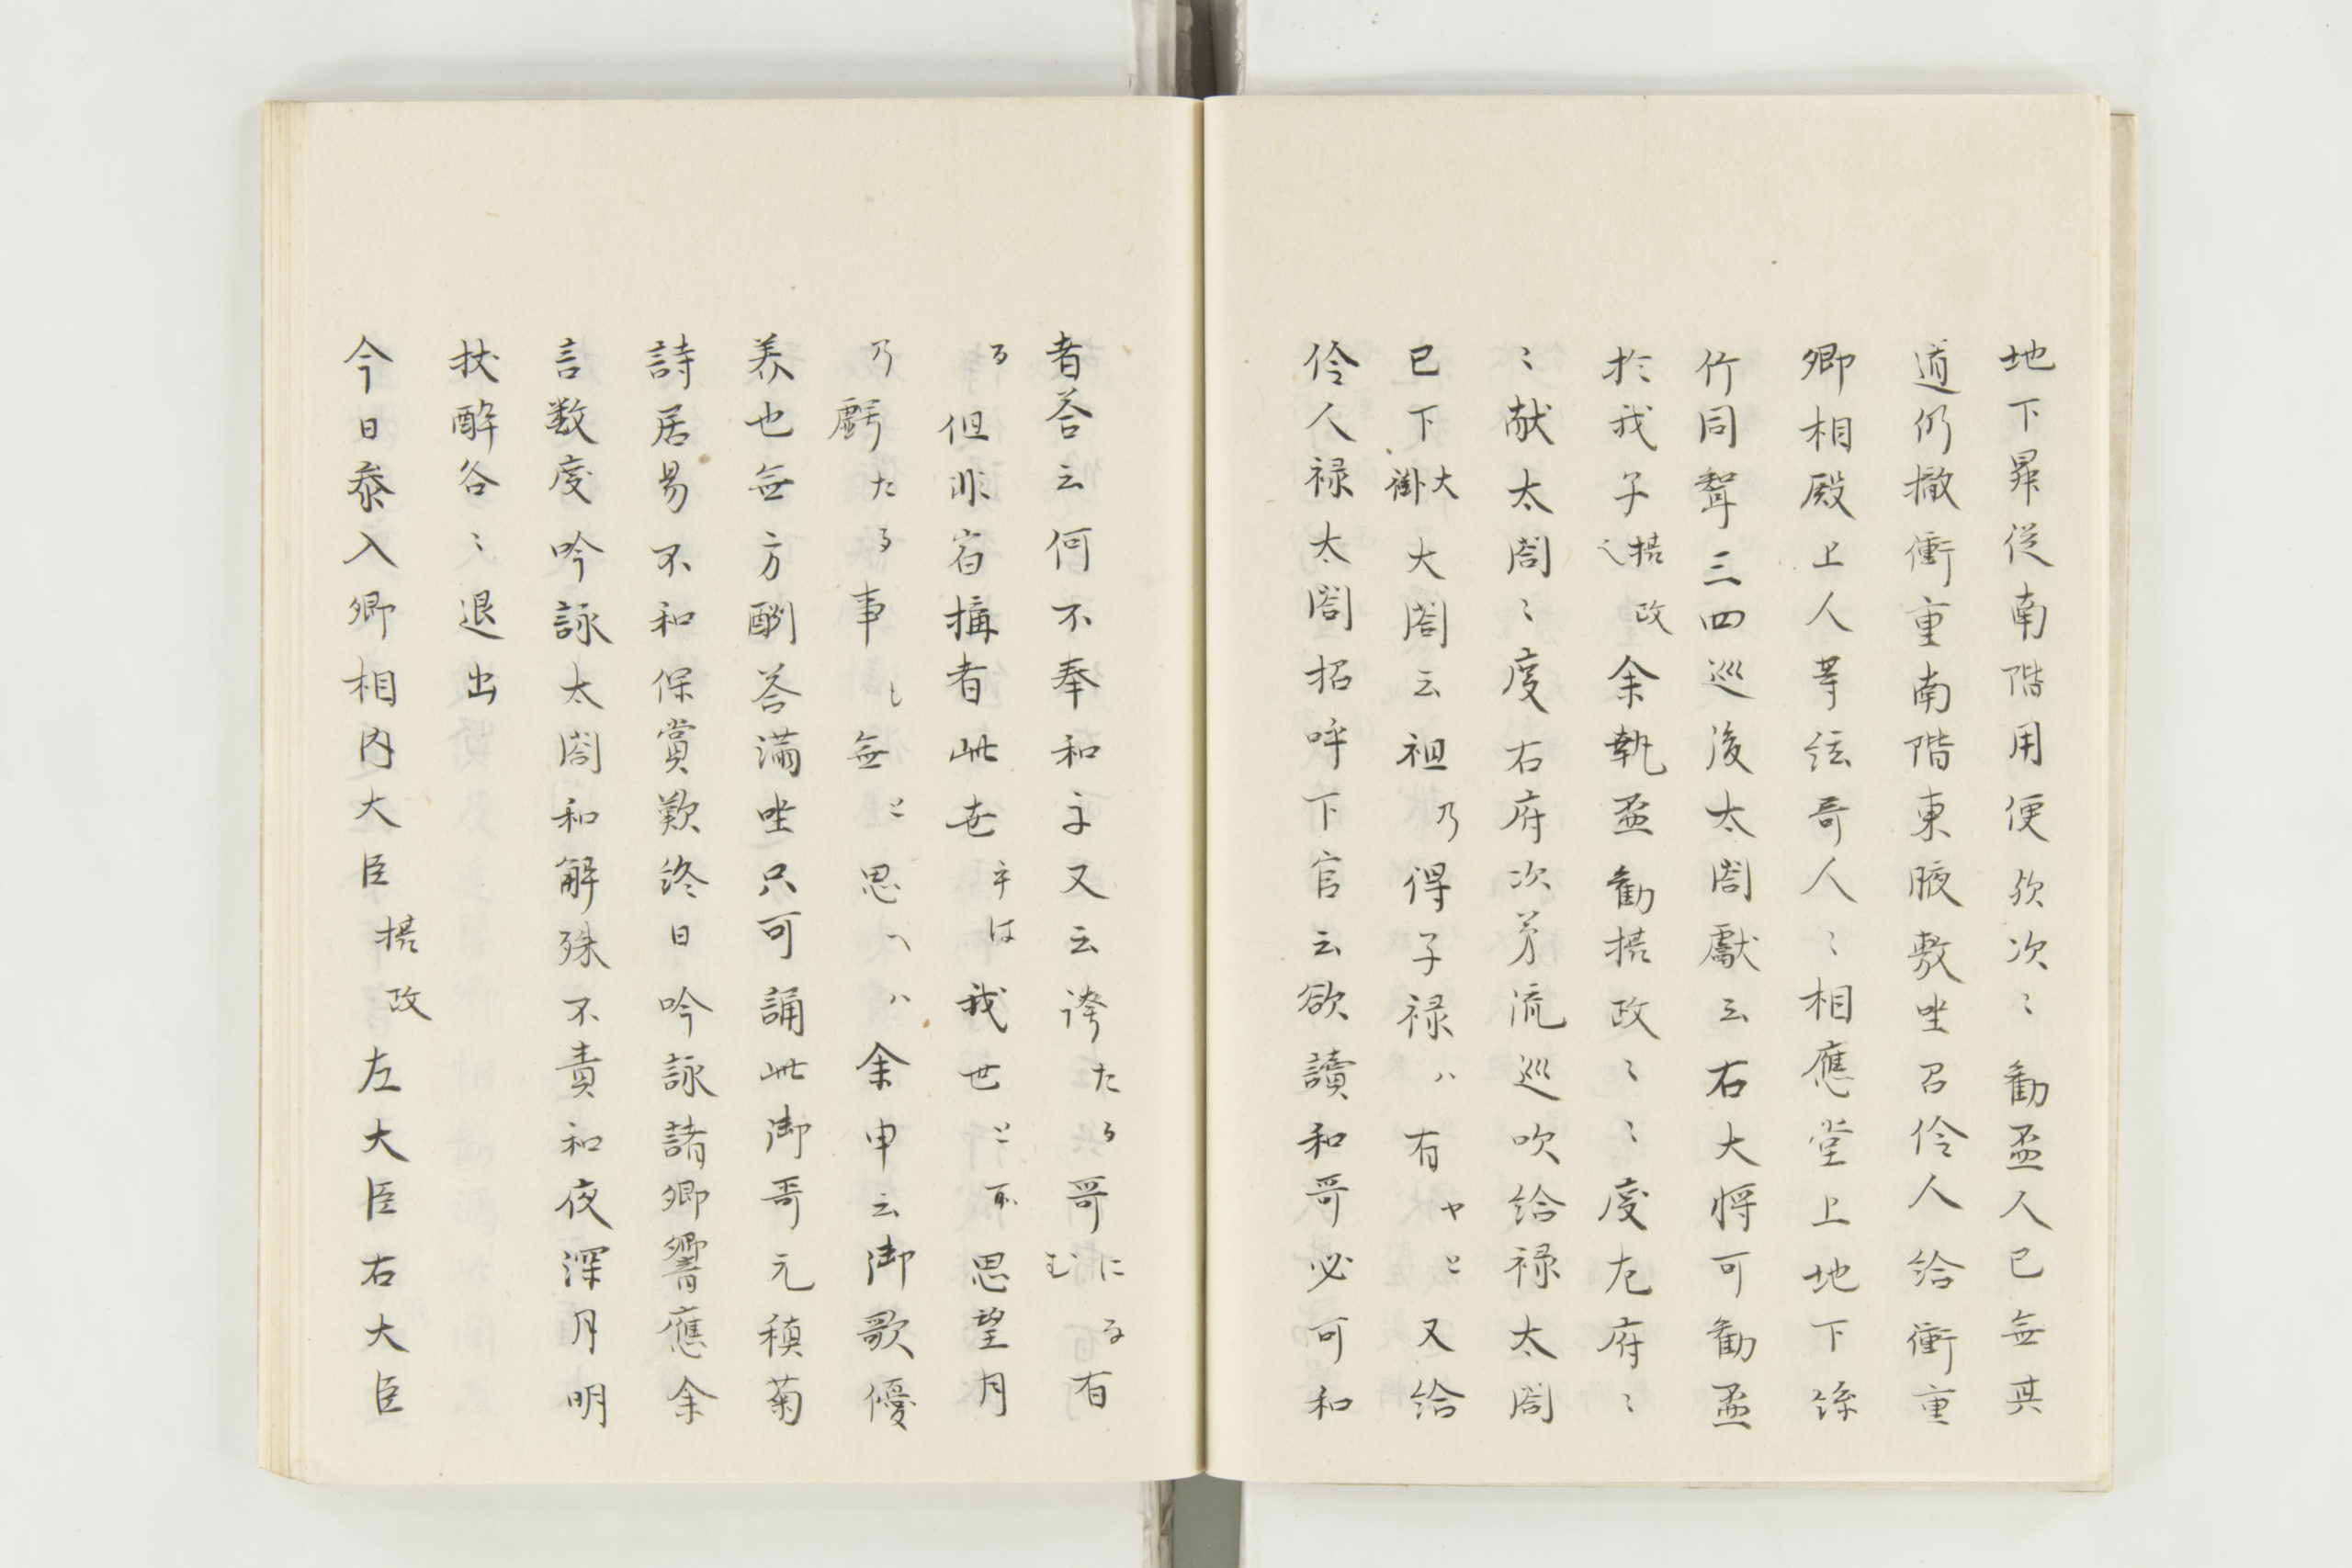 地下昇従南階用便欤次〻勧盃人已無其
道仍撤衝重南階東腋敷㘴召伶人給衝重
卿相殿上人等絃哥人〻相應堂上地下絲
竹同聲三四巡後太閤獻云右大将可勧盃
於我子摂政之余執盃勧摂政〻〻度左府〻
〻献太閤〻度右府次第流巡吹給禄太閤
已下大褂大閤云祖乃得子禄ハ有ヤと又給
伶人禄太閤招呼下官云欲讀和哥必可和
者荅云何不奉和乎又云誇たる哥になむ有
る但非宿搆者此世乎は我世と所思望月
乃虧たる事も無と思へハ余申云御歌優
美也無方酬荅満㘴只可誦此御哥元稹菊
詩居易不和保賞歎終日吟詠諸卿響應余
言数度吟詠太閤和解殊不責和夜深月明
扶酔各〻退出
今日叅入卿相内大臣摂政左大臣右大臣